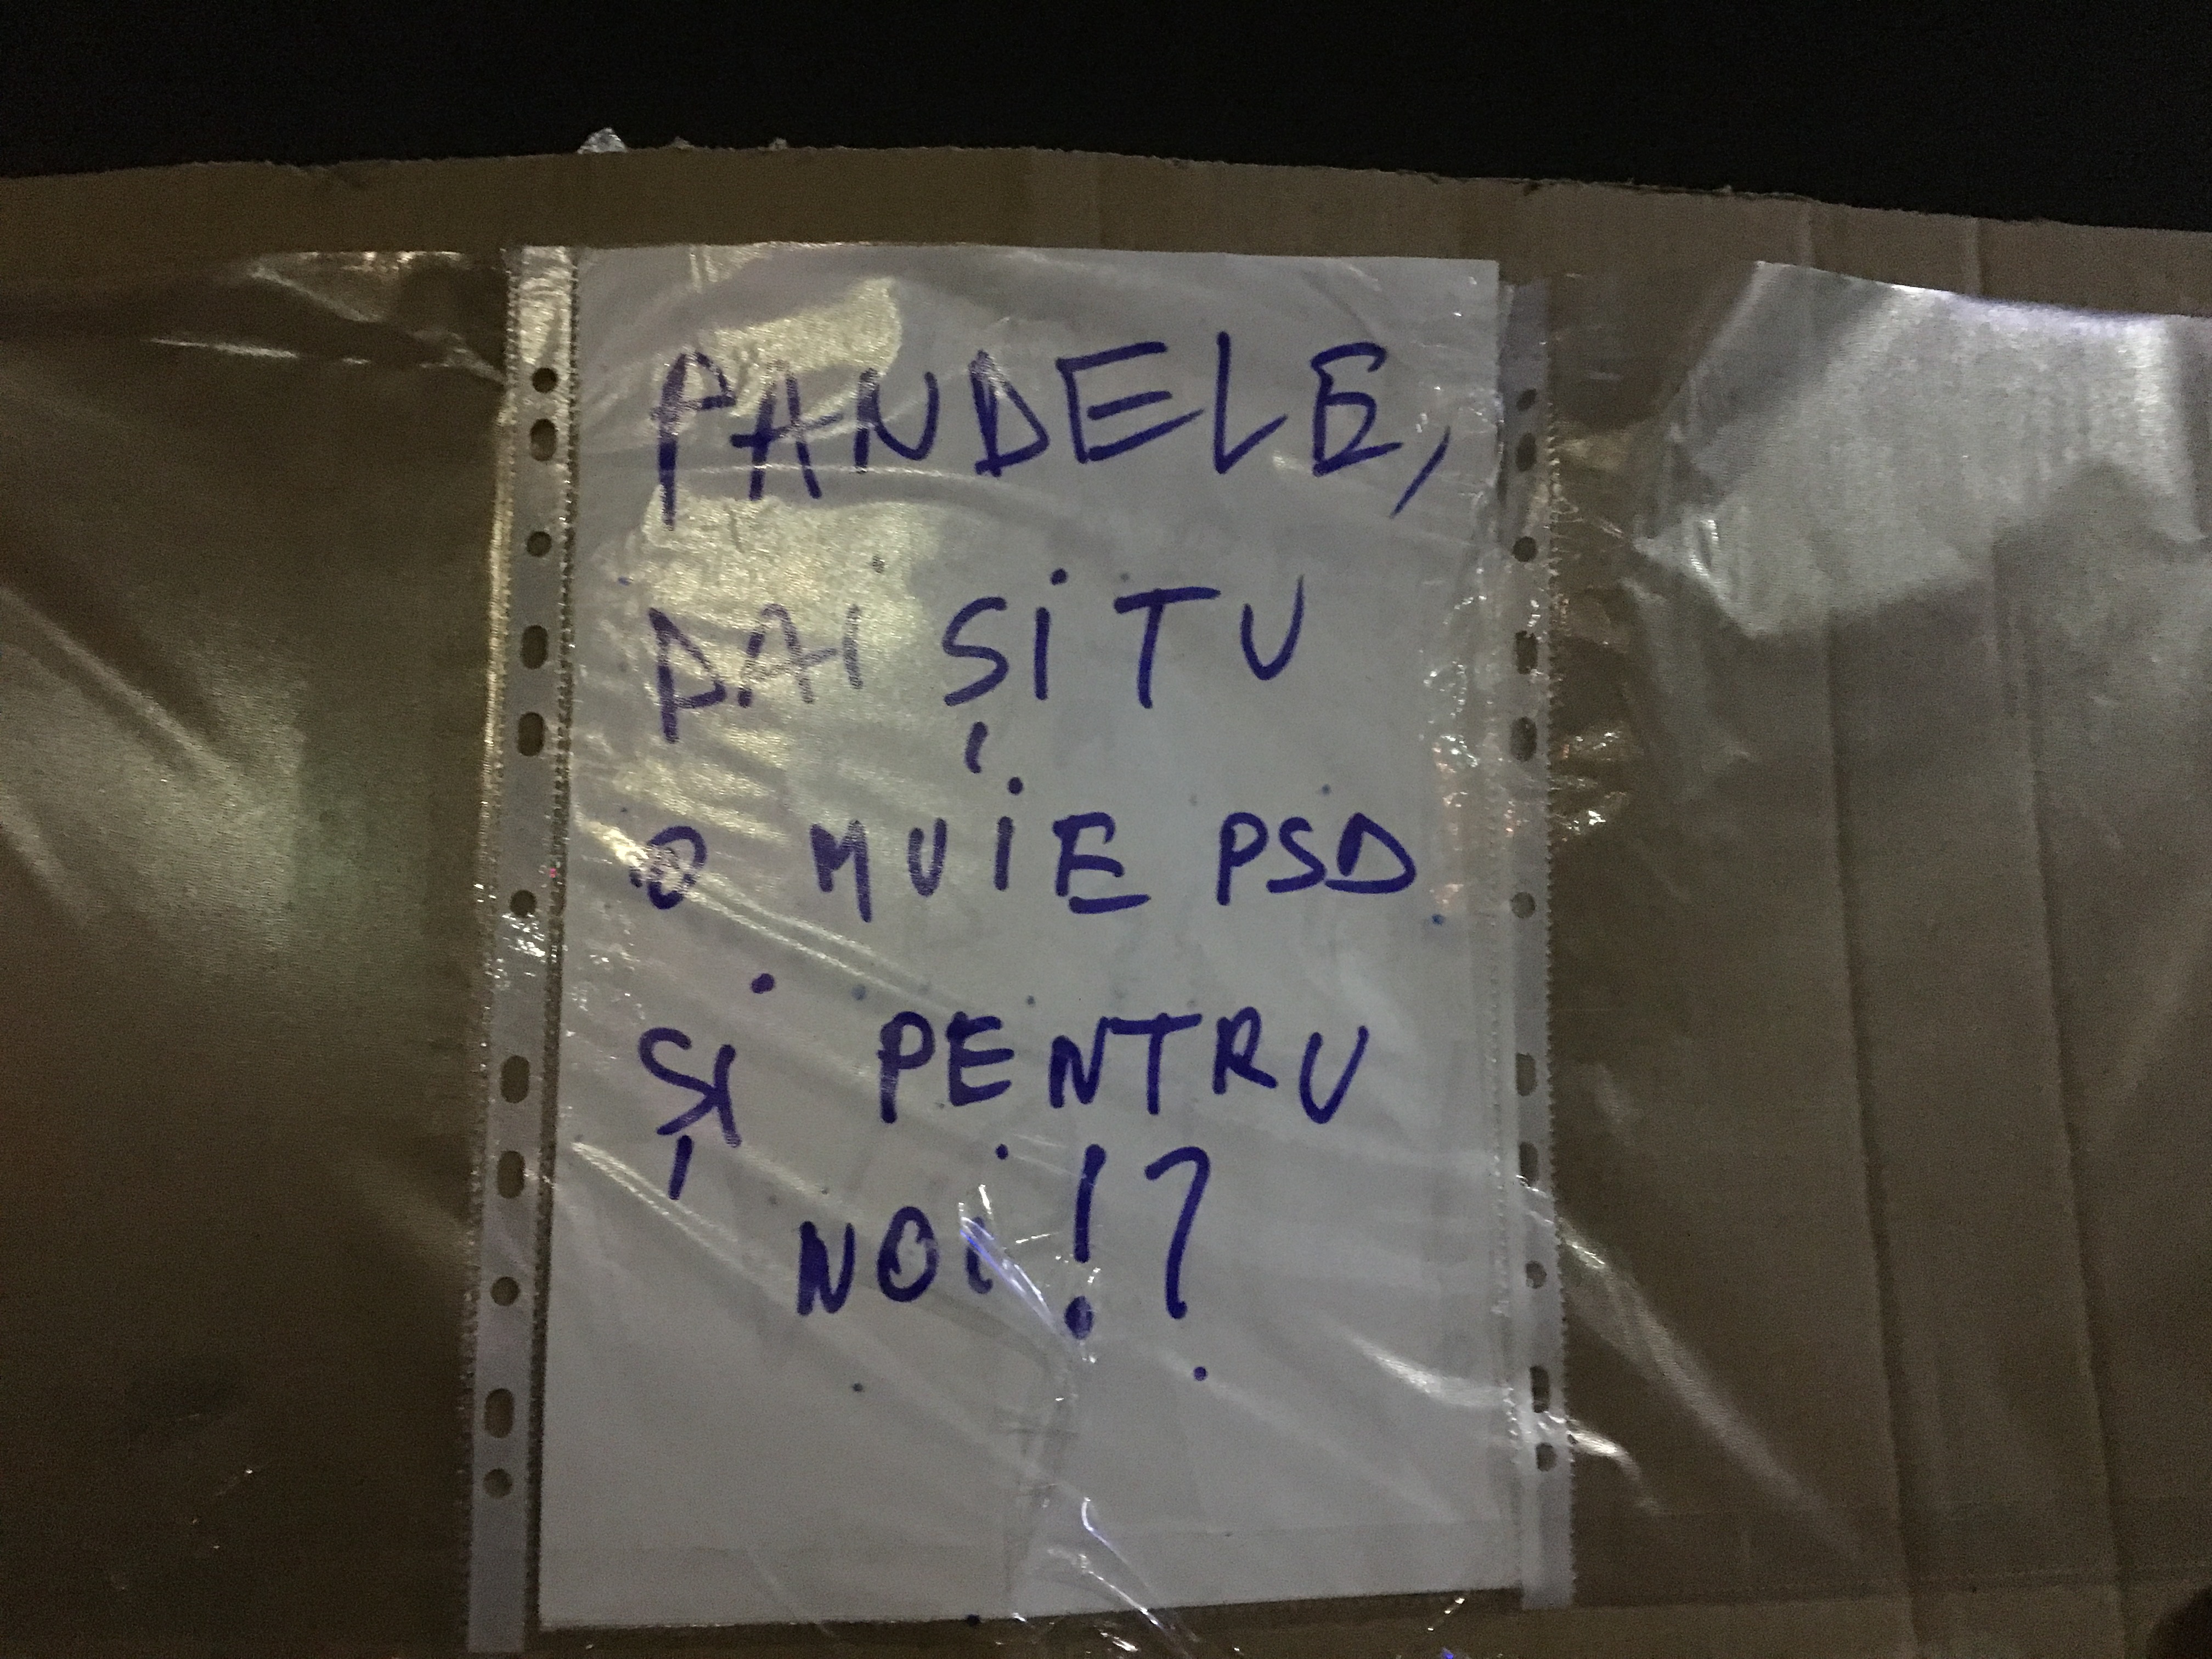 PANDELE,
DAI ȘI TU
O MUIE PSD
ȘI PENTRU
NOI!?